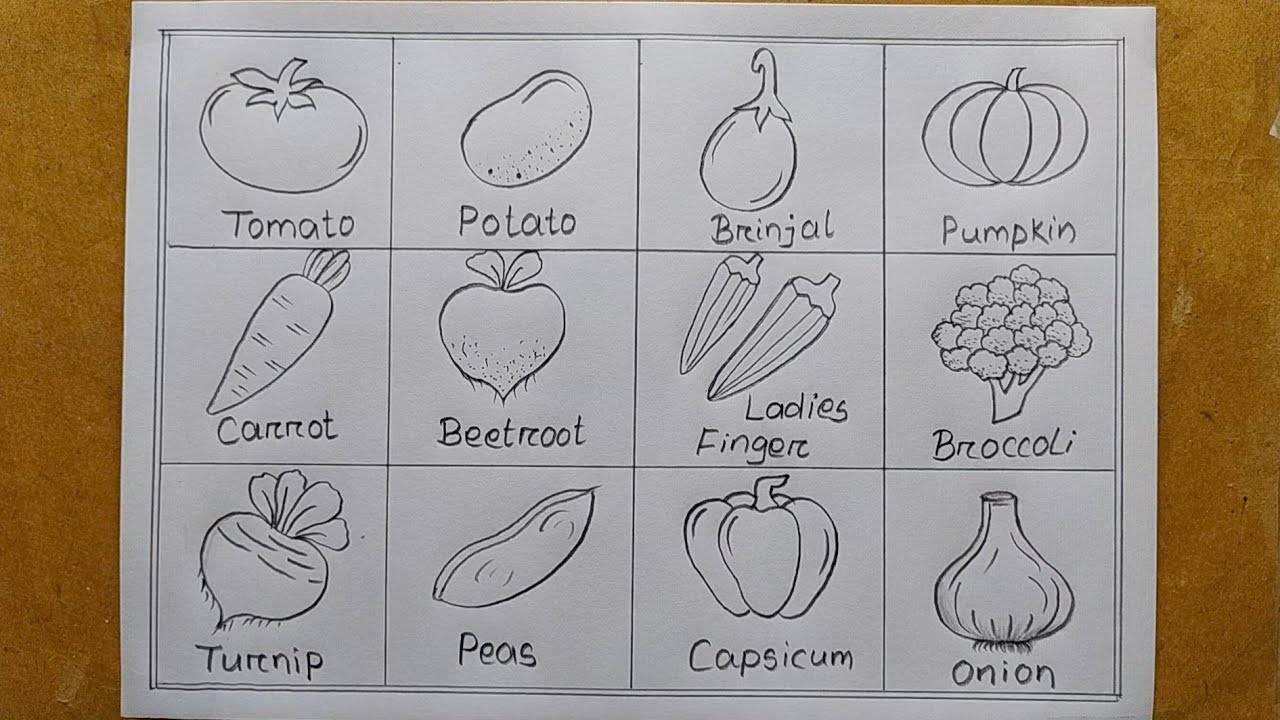 Tomato
Potato
Brinjal
Pumpkin
Carrot
Beetroot
Ladies
Finger
Broccoli
Turnip
Peas
Capsicum
Onion